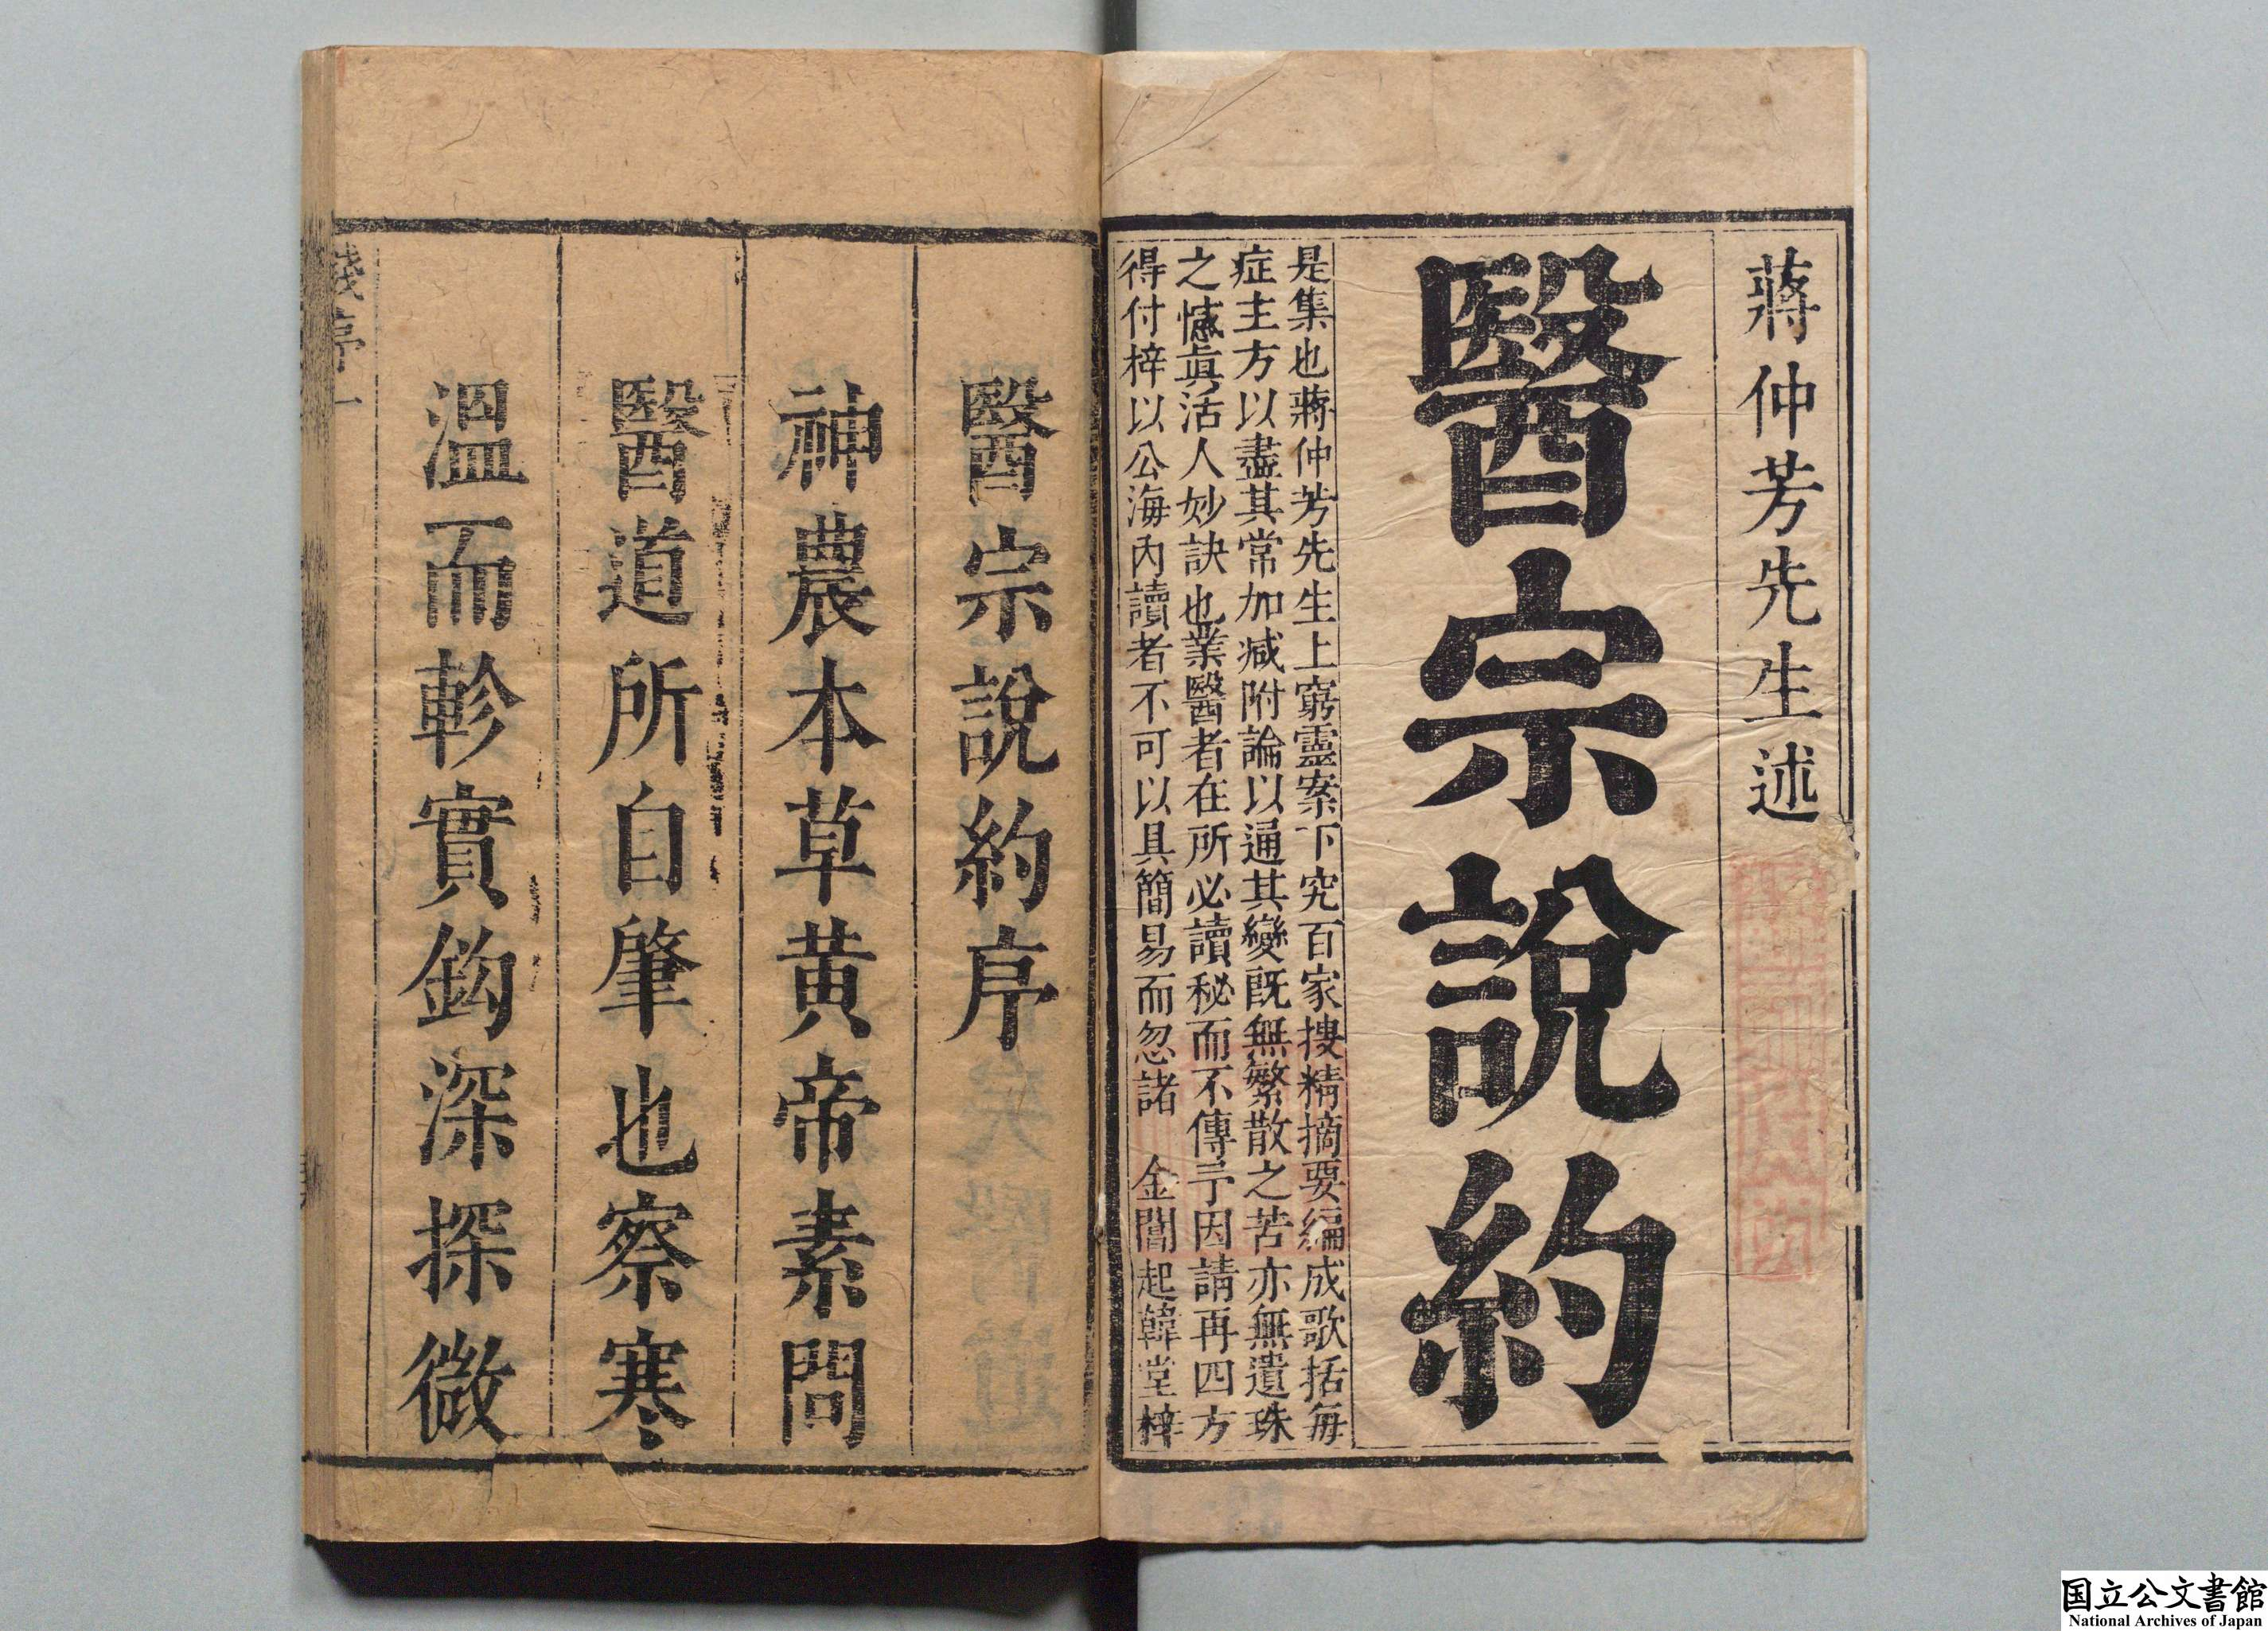 蔣仲芳先生述
醫宗說約
是集也蔣仲芳先生上窮靈案下究百家搜精摘要編成歌括每
症主方以盡其常加减附論以通其變既無繁散之苦亦無遺珠
之憾眞活人妙訣也業醫者在所必讀秘而不傳予因請再四方
得付梓以公海內讀者不可以其簡易而忽諸　金閶起韓堂梓
醫宗說約序
神農本草黄帝素問
醫道所自肇也察寒
溫而軫實鈎深探微
錢序一
国立公文書館
National Archives of Japan